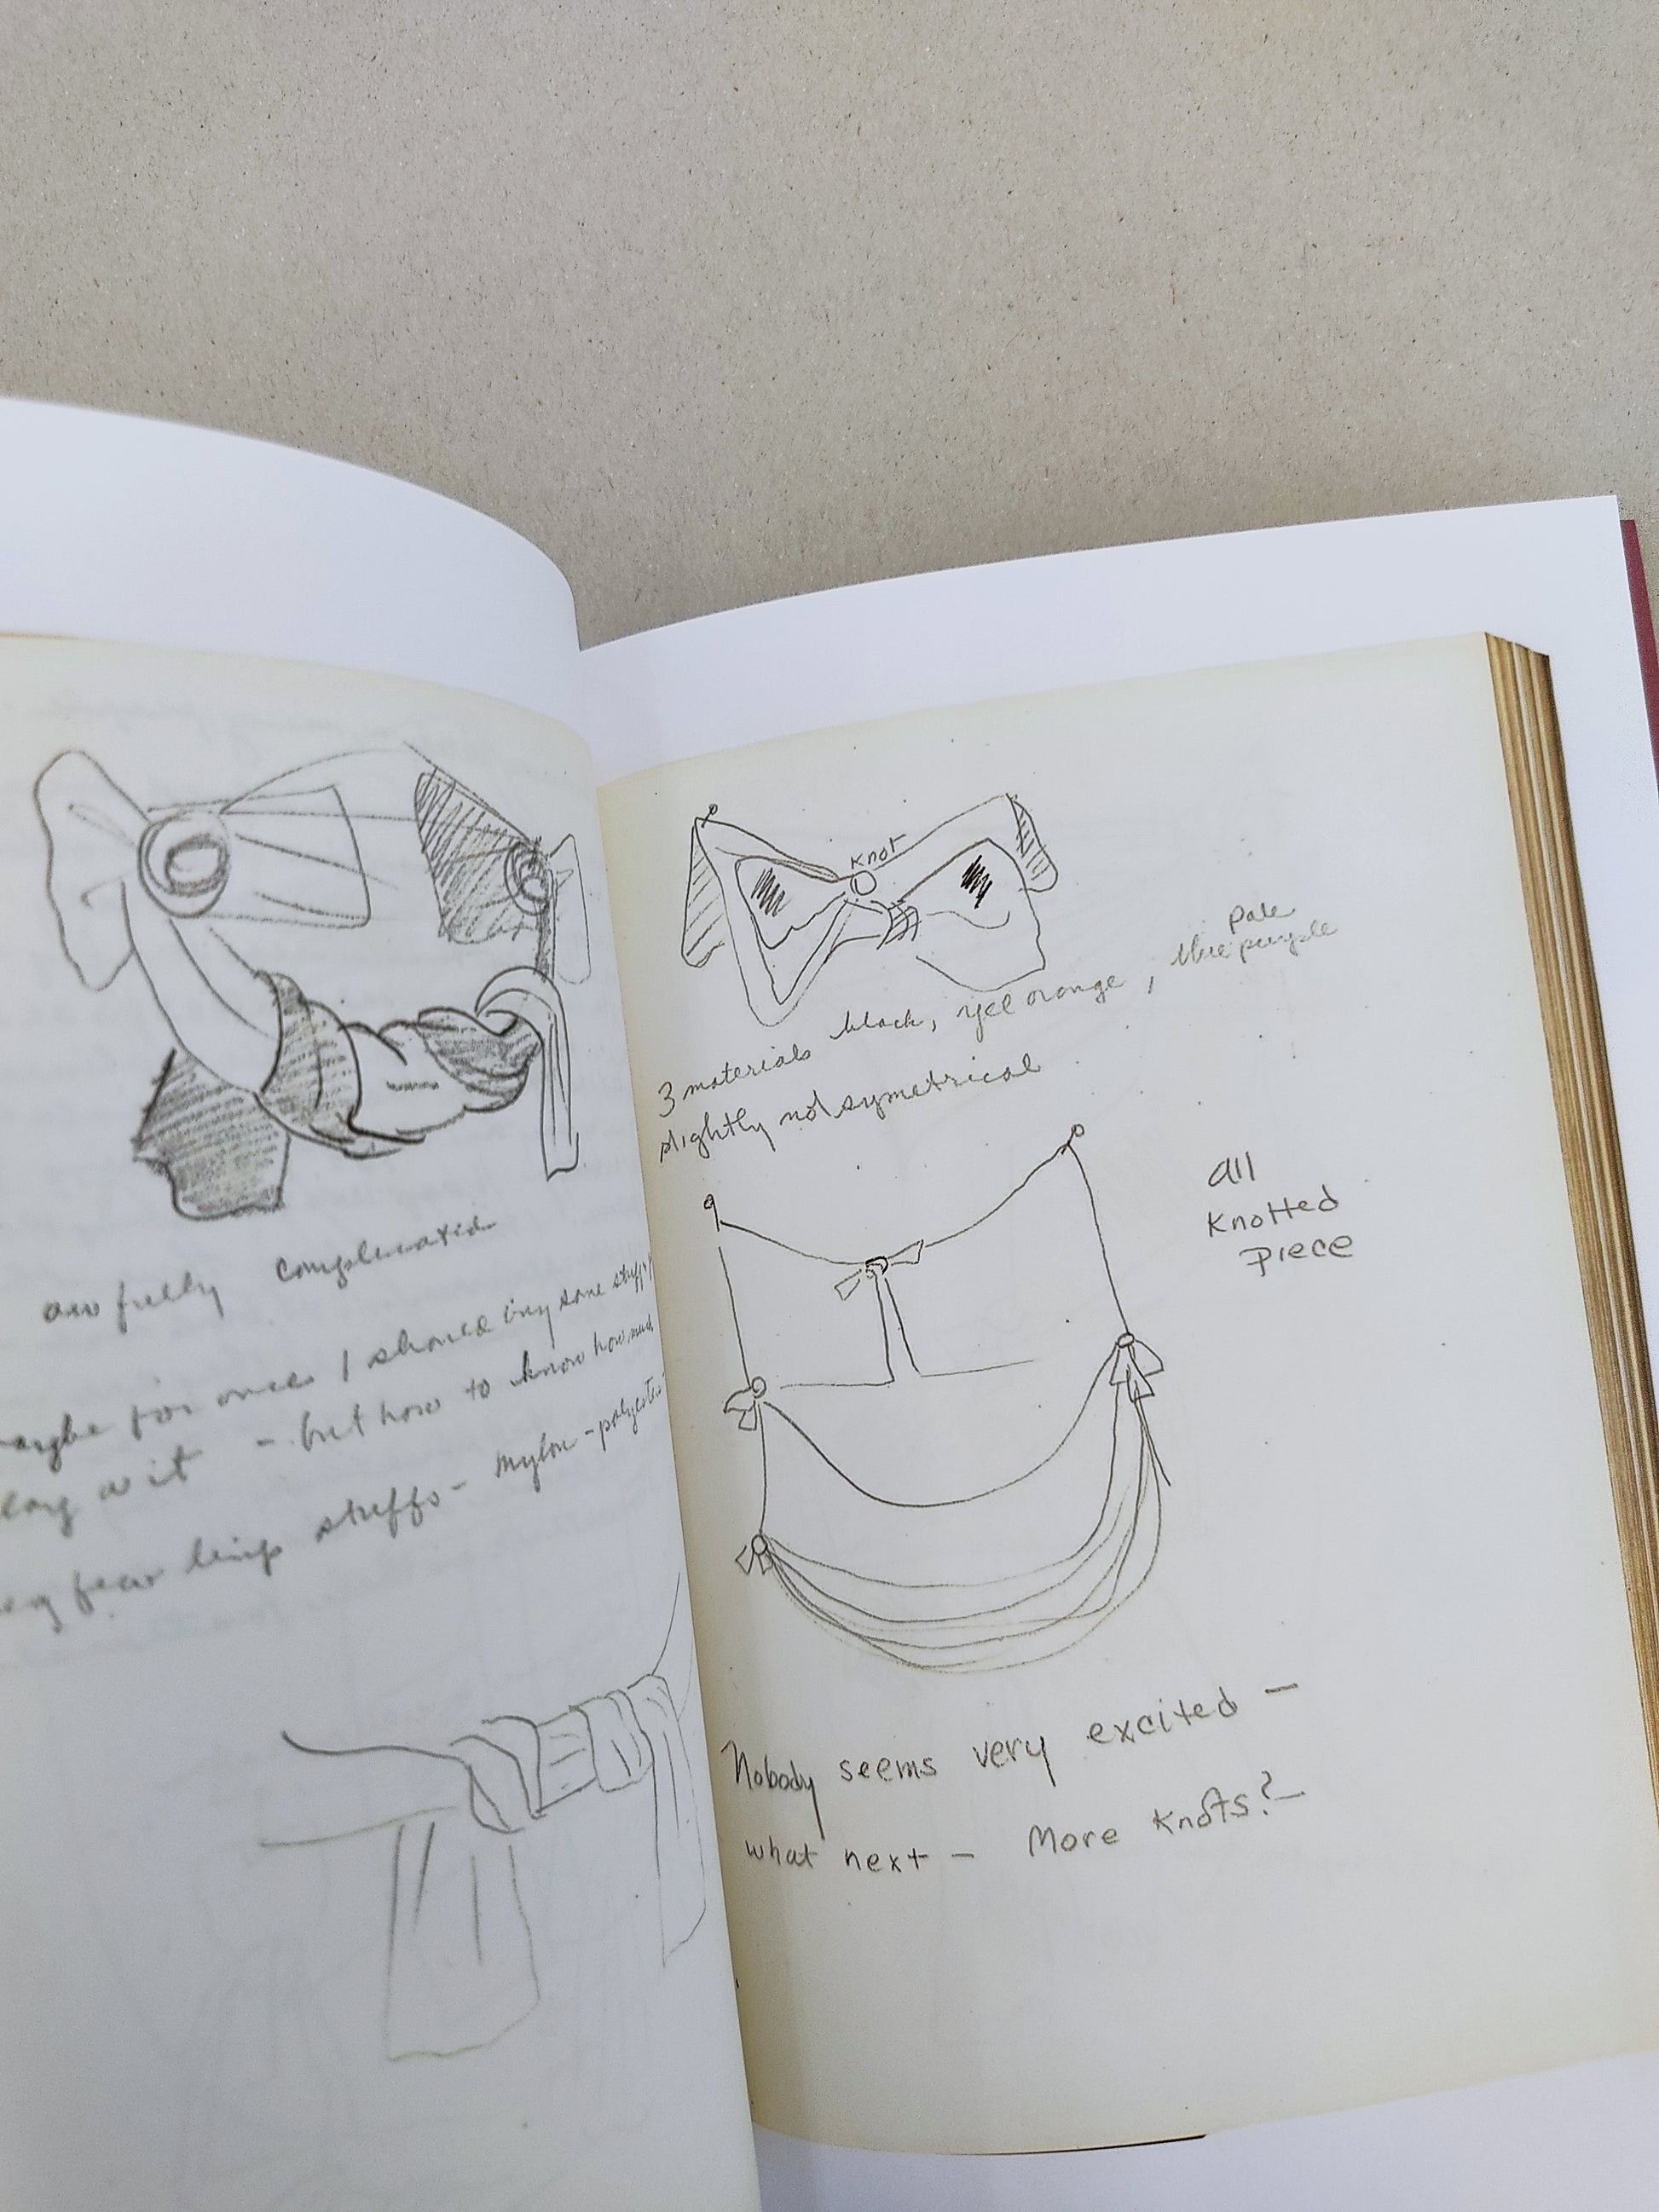 awfully complicated
maybe for once I should buy some stuff
- but how to know how much
stuffs - nylon - polyester
Knot
pale
blue purple
3 materials black, yel orange,
slightly not symetrical
all
Knotted
Piece
Nobody seems very excited —
what next — More Knots? —